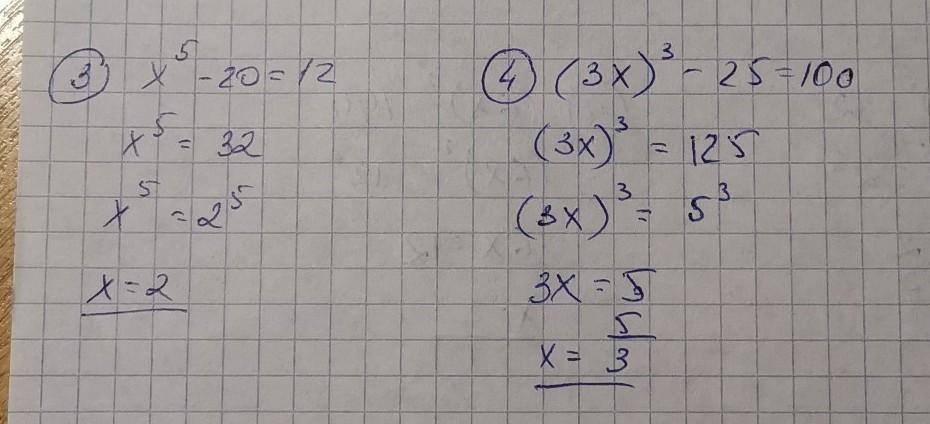 ③ x⁵ - 20 = 12
x⁵ = 32
x⁵ = 2⁵
x = 2
④ (3x)³ - 25 = 100
(3x)³ = 125
(3x)³ = 5³
3x = 5
x = 5/3